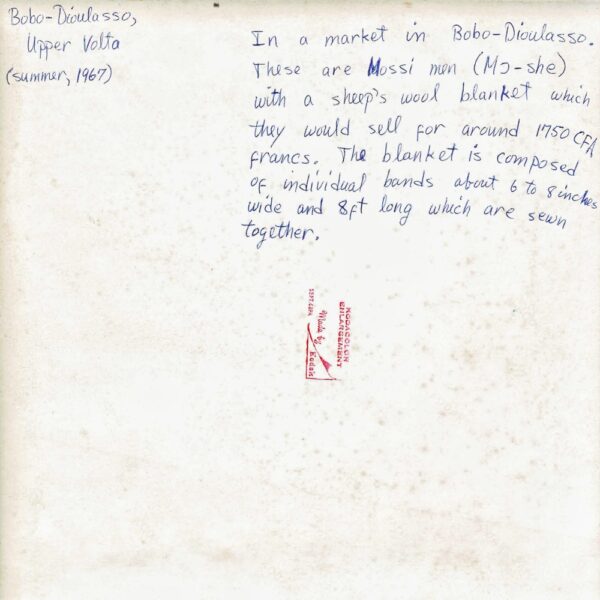 Bobo-Dioulasso,
Upper Volta
(summer, 1967)
In a market in Bobo-Dioulasso.
These are Mossi men (Mɔ-she)
with a sheep's wool blanket which
they would sell for around 1750 CFA
francs. The blanket is composed
of individual bands about 6 to 8 inches
wide and 8ft long which are sewn
together.
KODACOLOR
ENLARGEMENT
Made by
Kodak